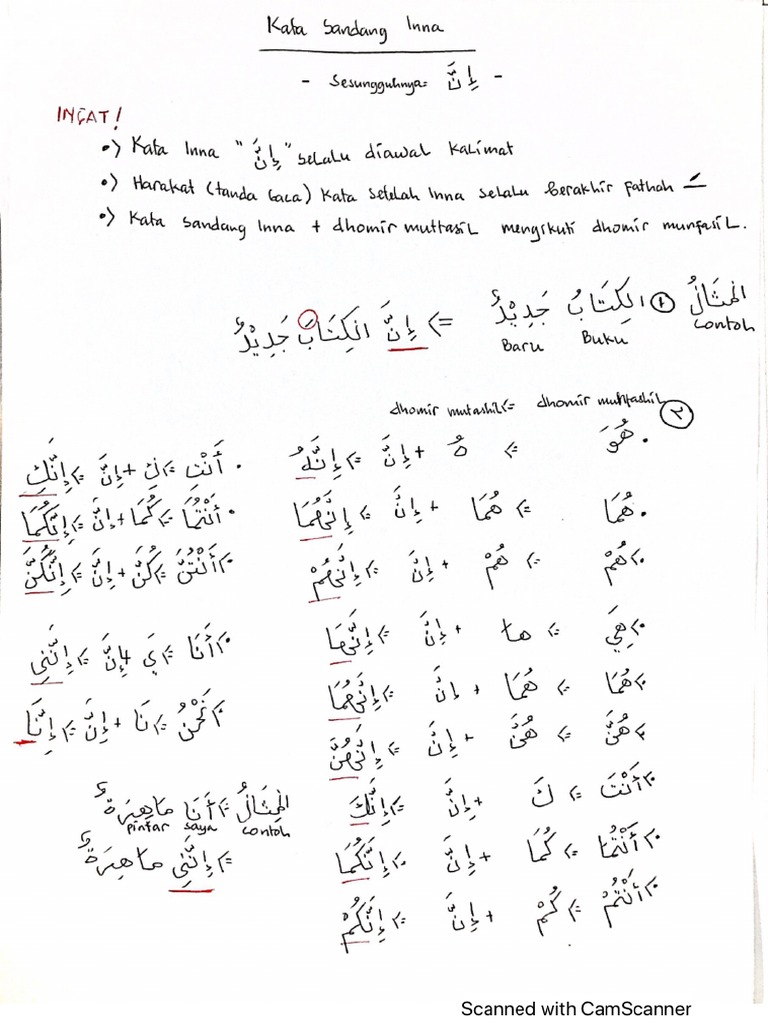 Kata Sandang Inna
- Sesungguhnya = إِنَّ -
INGAT!
•> Kata Inna "إِنَّ" selalu diawal kalimat
•> Harakat (tanda baca) kata setelah Inna selalu berakhir fathah ـَ
•> Kata Sandang Inna + dhomir muttasil mengikuti dhomir munfasil.
المِثَالُ ① الكِتَابُ جَدِيْدٌ => إِنَّ الكِتَابَ جَدِيْدٌ
contoh Buku Baru
٢ dhomir munfashil => dhomir mutashil
• هُوَ => هُ + إِنَّ => إِنَّهُ
• هُمَا => هُمَا + إِنَّ => إِنَّهُمَا
• هُمْ => هُمْ + إِنَّ => إِنَّهُمْ
• هِيَ => ها + إِنَّ => إِنَّهَا
• هُمَا => هُمَا + إِنَّ => إِنَّهُمَا
• هُنَّ => هُنَّ + إِنَّ => إِنَّهُنَّ
• أَنْتَ => كَ + إِنَّ => إِنَّكَ
• أَنْتُمَا => كُمَا + إِنَّ => إِنَّكُمَا
• أَنْتُمْ => كُمْ + إِنَّ => إِنَّكُمْ
• أَنْتِ => كِ + إِنَّ => إِنَّكِ
• أَنْتُمَا => كُمَا + إِنَّ => إِنَّكُمَا
• أَنْتُنَّ => كُنَّ + إِنَّ => إِنَّكُنَّ
• أَنَا => يَ + إِنَّ => إِنَّنِي
• نَحْنُ => نَا + إِنَّ => إِنَّا
المِثَالُ => أَنَا مَاهِيرَةٌ
contoh saya pintar
=> إِنَّنِي مَاهِيرَةٌ
Scanned with CamScanner